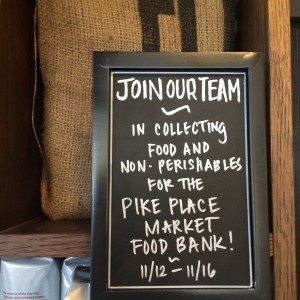 JOIN OUR TEAM
~
IN COLLECTING
FOOD AND
NON-PERISHABLES
FOR THE
PIKE PLACE
MARKET
FOOD BANK!
~
11/12 — 11/16